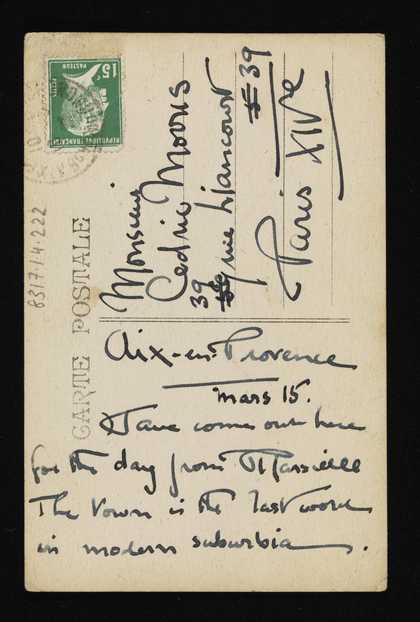 CARTE POSTALE
15c
PASTEUR
POSTES
REPUBLIQUE FRANÇAISE
8317.1.4.222
Monsieur
Cedric Morris
39
39 rue Liancourt
39
Paris XIVe
Aix-en-Provence
mars 15.
Have come out here
for the day from Marseille
The town is the last word
in modern suburbia.